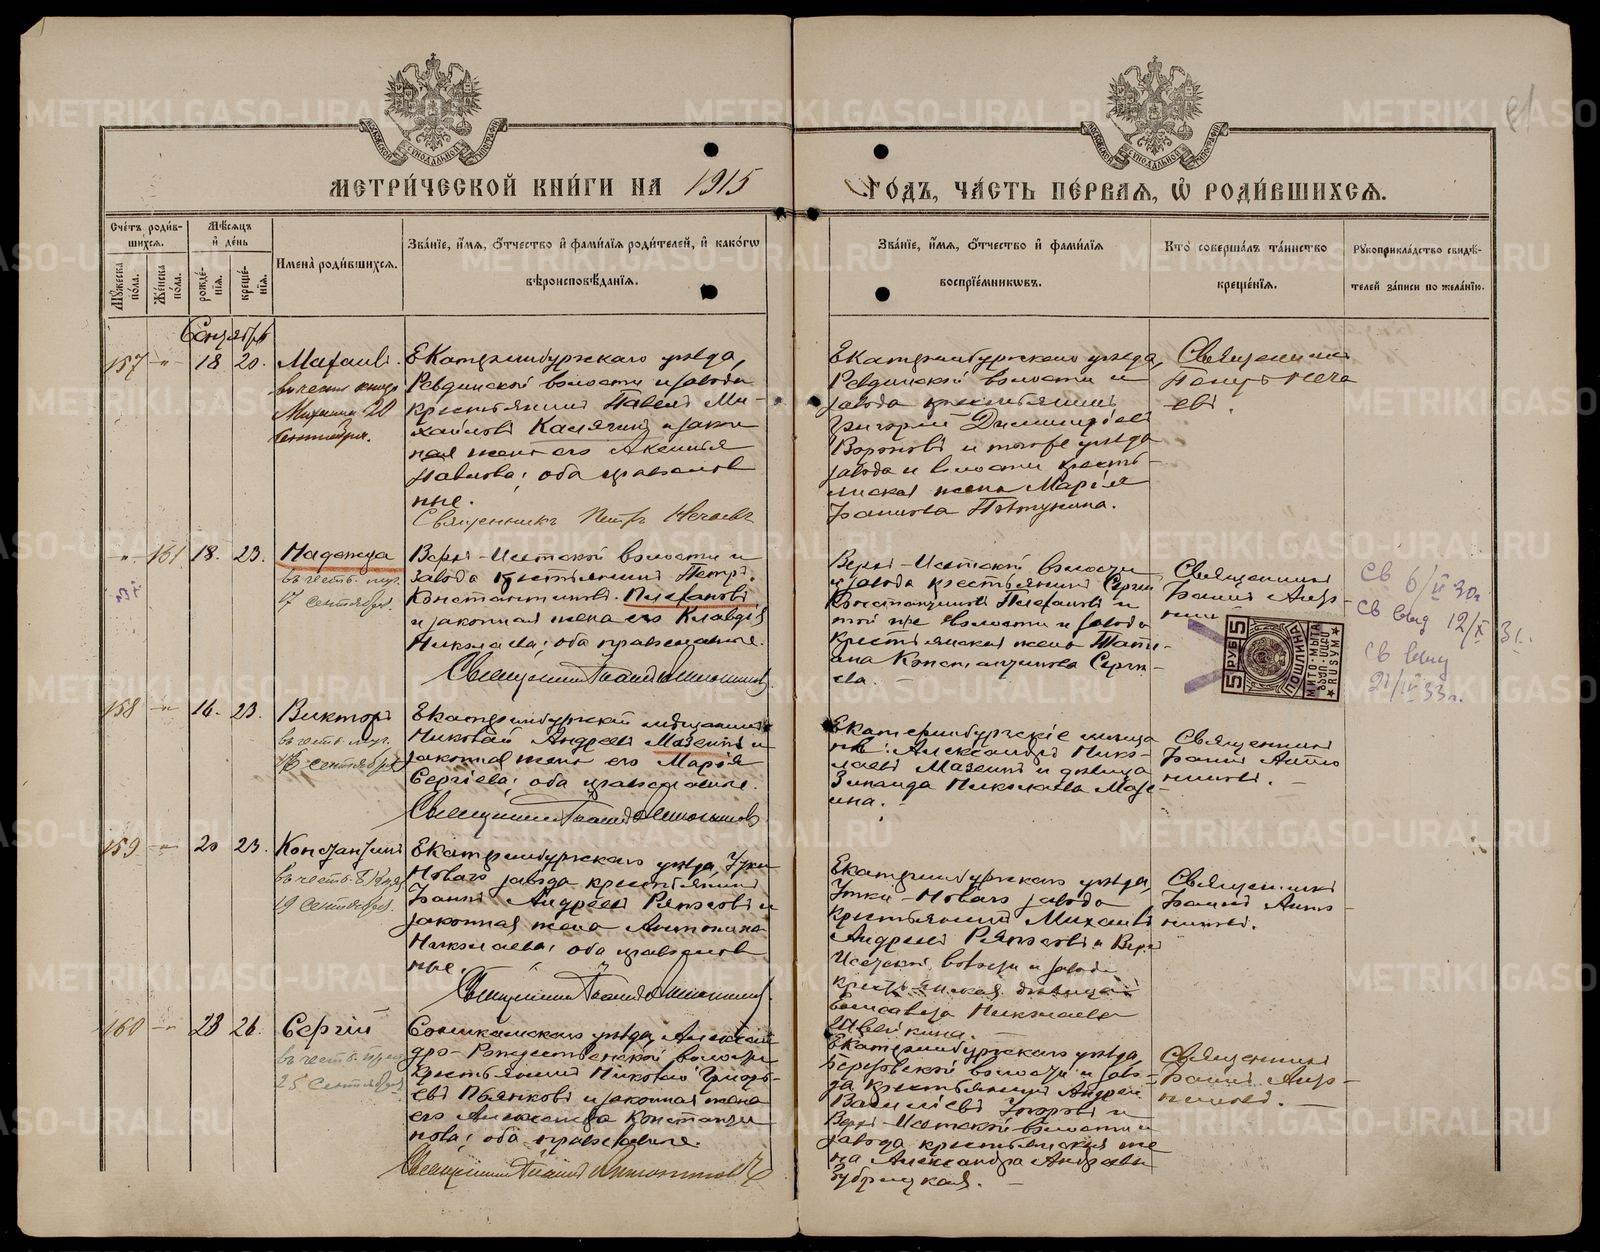 МЕТРИ́ЧЕСКОЙ КНИ́ГИ НА 1915
ГО́ДЪ, ЧА́СТЬ ПЕ́РВАЯ, Ѿ РОДИ́ВШИХСЯ.
Сче́тъ роди́в-
шихся.
Мѣ́сяцъ
и҆ де́нь
Мꙋ́жеска по́ла.
Же́нска по́ла.
рожде́-
нія.
креще́-
нія.
Имена̀ роди́вшихся.
Зва́ніе, и҆́мя, ѻ҆́тчество и҆ фами́лія роди́телей, и҆ како́гѡ
вѣроисповѣ́данія.
Зва́ніе, и҆́мя, ѻ҆́тчество и҆ фами́лія
воспрїе́мникѡвъ.
Кто̀ соверша́лъ та́инство
креще́нія.
Рꙋкоприкла́дство свидѣ́-
телей за́писи по жела́нію.
Сентябрь
157 - „ - 18 20.
Михаилъ.
въ честь князя
Михаила 20
Сентября.
Екатеринбургскаго уѣзда,
Ревдинской волости и завода
крестьянинъ Павелъ Ми-
хайловъ Калягинъ и закон
ная жена его Аксинья
Павлова; оба православ
ные.
Священникъ Петръ Нечаевъ
Екатеринбургскаго уѣзда,
Ревдинской волости и
завода крестьянинъ
Григорій Димитріевъ
Вороновъ и того же уѣзда
завода и волости кресть-
янская жена Марія
Иванова
Священникъ
Петръ Неча
евъ.
- „ - 151 18. 23.
Надежда
въ честь муч.
17 сентября.
Верхъ-Исетской волости и
завода крестьянинъ Петръ
Константиновъ Пелехановъ
и законная жена его Клавдія
Николаева; оба православные.
Священникъ Іоаннъ
Верхъ-Исетской волости
и завода крестьянинъ Сергій
Константиновъ Пелехановъ и
той же волости и завода
крестьянская жена Тати-
ана Константинова Серге-
ева.
Священникъ
Іоаннъ
5 РУБ 5
ПОШЛИНА
МИТО·МЫТА
RUSUM
св 6/VI 30г.
св выд 12/X 31.
св выд
21/IV 33г.
158 - „ - 16. 23.
Викторъ
въ честь муч.
16 сентября
Екатеринбургскій мѣщанинъ
Николай Андреевъ Мазеинъ и
законная жена его Марія
Сергіева; оба православные.
Священникъ Іоаннъ
Екатеринбургскіе мѣща
не: Александръ Нико-
лаевъ Мазеинъ и дѣвица
Зинаида Николаева Мазе-
ина.
Священникъ
Іоаннъ
159 - „ - 20 23.
Константинъ
въ честь
19 сентября.
Екатеринбургскаго уѣзда, Утки
Новаго завода крестьянинъ
Іоаннъ Андреевъ Ряпосовъ и
законная жена Антонина
Николаева; оба православ
ные.
Священникъ Іоаннъ
Екатеринбургскаго уѣзда,
Утки-Новаго завода
крестьянинъ Михаилъ
Андреевъ Ряпосовъ и Верхъ
Исетской волости и завода
крестьянская дѣвица
Елисавета Николаева
Швейкина.
Священникъ
Іоаннъ
160 - „ - 23 26.
Сергій
въ честь преп
25 Сентября
Соликамскаго уѣзда, Алексан
дро-Рождественской волости
крестьянинъ Николай Григорь-
евъ Пьянковъ и законная жена
его Александра Константи
нова; оба православные.
Священникъ Іоаннъ
Екатеринбургскаго уѣзда,
Березовской волости и заво-
да крестьянинъ Андрей
Василіевъ и
Верхъ-Исетской волости и
завода крестьянская же
на Александра Андреева
Зубрицкая.
Священникъ
Іоаннъ
METRIKI.GASO-URAL.RU